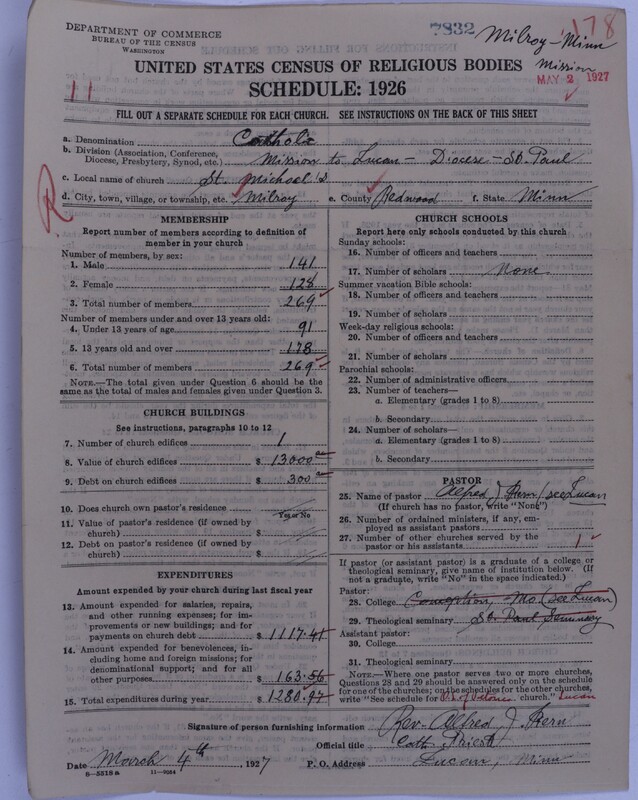 DEPARTMENT OF COMMERCE
BUREAU OF THE CENSUS
WASHINGTON
7832
178
Milroy - Minn
Mission
MAY 2 1927
UNITED STATES CENSUS OF RELIGIOUS BODIES
SCHEDULE: 1926
11
FILL OUT A SEPARATE SCHEDULE FOR EACH CHURCH. SEE INSTRUCTIONS ON THE BACK OF THIS SHEET
a. Denomination Catholic
b. Division (Association, Conference, Diocese, Presbytery, Synod, etc.) Mission to Lucan - Diocese - St. Paul
c. Local name of church St. Michael's
d. City, town, village, or township, etc. Milroy e. County Redwood f. State Minn
R
MEMBERSHIP
Report number of members according to definition of
member in your church
Number of members, by sex:
1. Male 141
2. Female 128
3. Total number of members 269
Number of members under and over 13 years old:
4. Under 13 years of age 91
5. 13 years old and over 178
6. Total number of members 269
NOTE.—The total given under Question 6 should be the
same as the total of males and females given under Question 3.
CHURCH BUILDINGS
See instructions, paragraphs 10 to 12
7. Number of church edifices 1
8. Value of church edifices $ 13000
9. Debt on church edifices $ 300
10. Does church own pastor's residence
Yes or No
11. Value of pastor's residence (if owned by
church) $
12. Debt on pastor's residence (if owned by
church) $
EXPENDITURES
Amount expended by your church during last fiscal year
13. Amount expended for salaries, repairs,
and other running expenses; for im-
provements or new buildings; and for
payments on church debt $ 1117.41
14. Amount expended for benevolences, in-
cluding home and foreign missions; for
denominational support; and for all
other purposes $ 163.56
15. Total expenditures during year $ 1280.97
CHURCH SCHOOLS
Report here only schools conducted by this church
Sunday schools:
16. Number of officers and teachers
17. Number of scholars None
Summer vacation Bible schools:
18. Number of officers and teachers
19. Number of scholars
Week-day religious schools:
20. Number of officers and teachers
21. Number of scholars
Parochial schools:
22. Number of administrative officers
23. Number of teachers—
a. Elementary (grades 1 to 8)
b. Secondary
24. Number of scholars—
a. Elementary (grades 1 to 8)
b. Secondary
PASTOR
25. Name of pastor Alfred J (see Lucan
(If church has no pastor, write "None")
26. Number of ordained ministers, if any, em-
ployed as assistant pastors
27. Number of other churches served by the
pastor or his assistants 1
If pastor (or assistant pastor) is a graduate of a college or
theological seminary, give name of institution below. (If
not a graduate, write "No" in the space indicated.)
Pastor:
28. College Conception, Mo. (see Lucan)
29. Theological seminary St. Paul Seminary
Assistant pastor:
30. College
31. Theological seminary
NOTE.—Where one pastor serves two or more churches,
Questions 28 and 29 should be answered only on the schedule
for one of the churches; on the schedules for the other churches,
write "See schedule for church." Lucan
Signature of person furnishing information Rev. Alfred J.
Official title Cath. Priest
Date March 4th, 1927 P. O. Address Lucan, Minn
8-5518a 11-9224